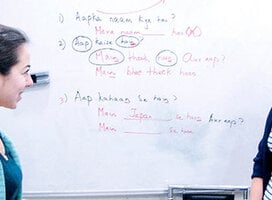 1) Aapka naam kya hai?
Mera naam ______ hai
2) Aap kaise hain?
Main theek hoon Aur aap?
Main bhee theek hoon
3) Aap kahaan se hain?
Main Japan se hoon Aur aap?
Main ______ se hoon